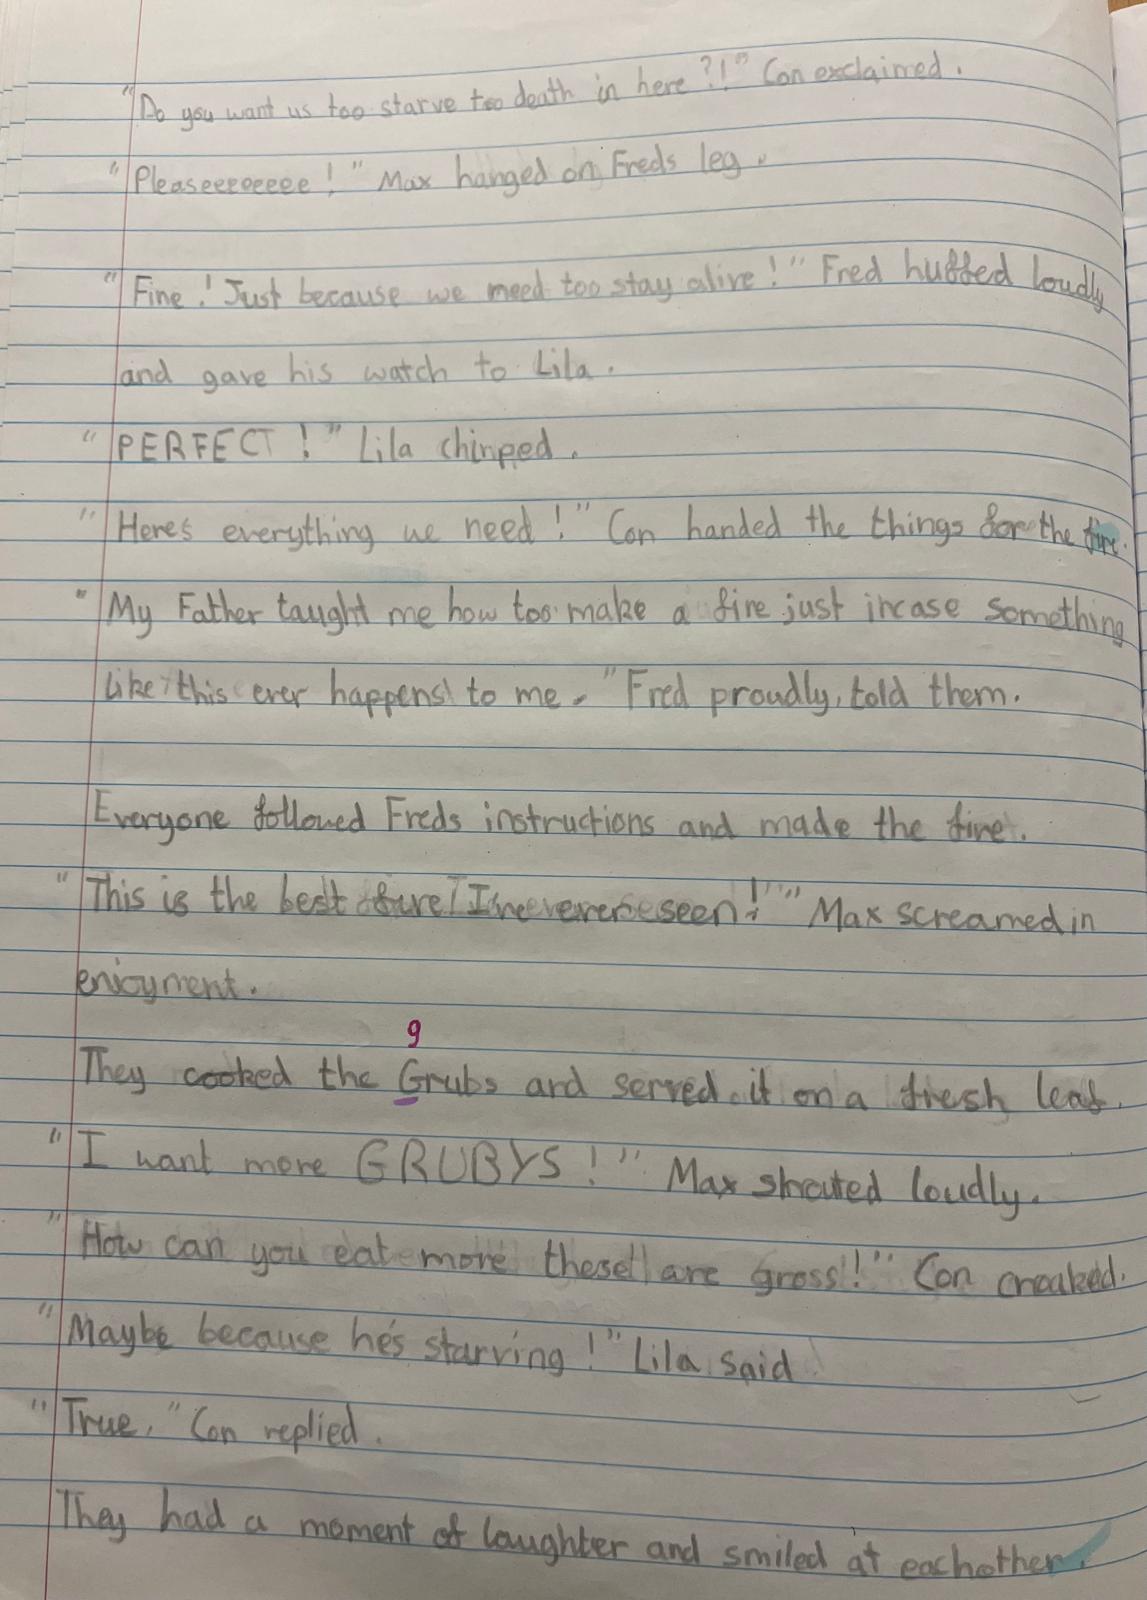 "Do you want us too starve too death in here?!" Con exclaimed.
"Pleaseeeeeeee!" Max hanged on Freds leg.
"Fine! Just because we need too stay alive!" Fred huffed loudly
and gave his watch to Lila.
"PERFECT!" Lila chirped.
"Here's everything we need!" Con handed the things for the fire.
"My Father taught me how too make a fire just incase something
like this ever happens to me." Fred proudly told them.
Everyone followed Freds instructions and made the fire.
"This is the best fire I've ever seen!" Max screamed in
enjoyment.
g
They cooked the Grubs and served it on a fresh leaf.
"I want more GRUBYS!" Max shouted loudly.
"How can you eat more these are gross!" Con croaked.
"Maybe because he's starving!" Lila said
"True." Con replied.
They had a moment of laughter and smiled at eachother.